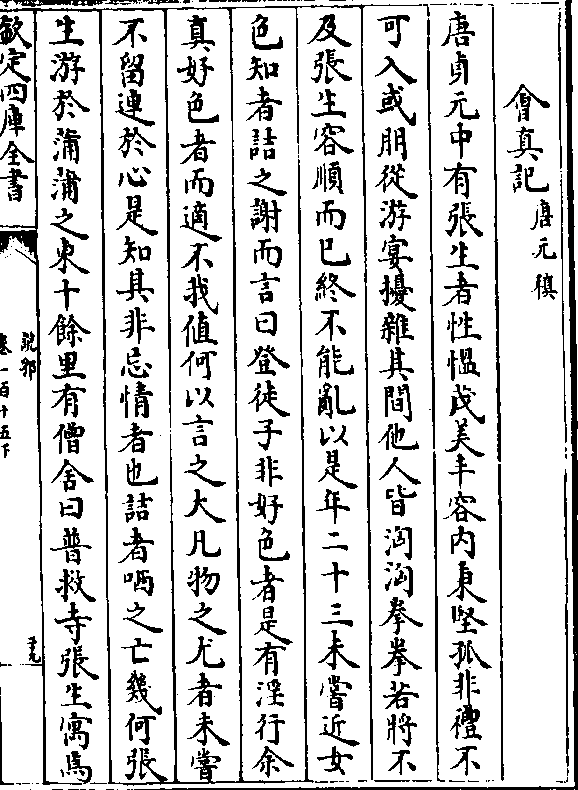 會真記 唐元稹
唐貞元中有張生者性慍茂美丰容內秉堅孤非禮不
可入或朋從游宴擾雜其間他人皆洶洶拳拳若將不
及張生容順而已終不能亂以是年二十三未嘗近女
色知者詰之謝而言曰登徒子非好色者是有淫行余
真好色者而適不我值何以言之大凡物之尤者未嘗
不留連於心是知其非忘情者也詰者哂之亡幾何張
生游於蒲蒲之東十餘里有僧舍曰普救寺張生寓焉
欽定四庫全書
說郛
卷一百十五下